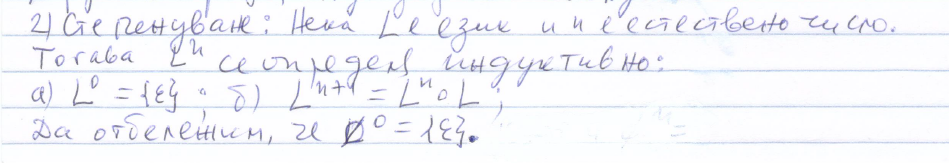 2) Степенуване: Нека L е език и n е естествено число.
Тогава Lⁿ се определя индуктивно:
а) L⁰ = {ε} ; б) Lⁿ⁺¹ = Lⁿ ∘ L ;
Да отбележим, че ∅⁰ = {ε}.